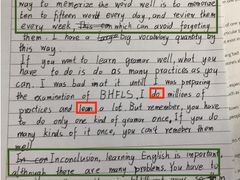 way to memorize the word well is to memorize
ten to fifteen word every day, and review them
every week, which can avoid forgetting
them. I have a big vocabulary quantity by
this way.
If you want to learn gramer well, what you
have to do is do as many practices as you
can. I was bad mat it until I was preparing
the examination of BHFLS. I do milions of
practices and lean a lot. But remember, you have
to do only one kind of gramor once, If you do
many kinds of it once, you can't remeber them
well
In conclusion, learning English is important,
although there are many problems. You have